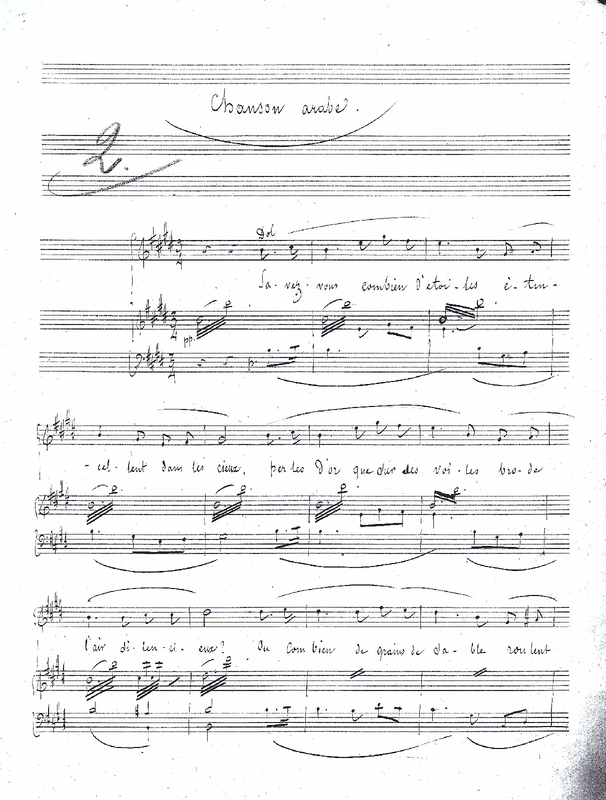 Chanson arabe.
2.
Dol
Sa-vez-vous combien d'étoi-les é-tin-
pp.
p.
-cel-lent dans les cieux, perles d'or que sur des voi-les bro-de
l'air si-len-ci-eux? Ou combien de grains de sa-ble roulent